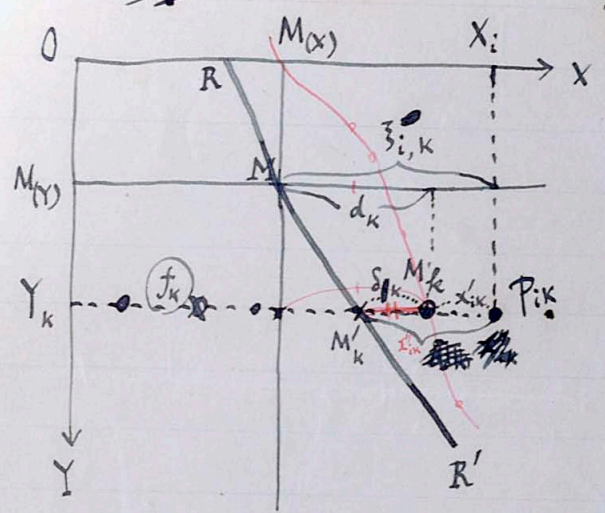 O M(X) Xi X
R
ξi,k
M(Y) M
dk
Yk fk δk M'k x'ik Pik
M'k
Y
R'